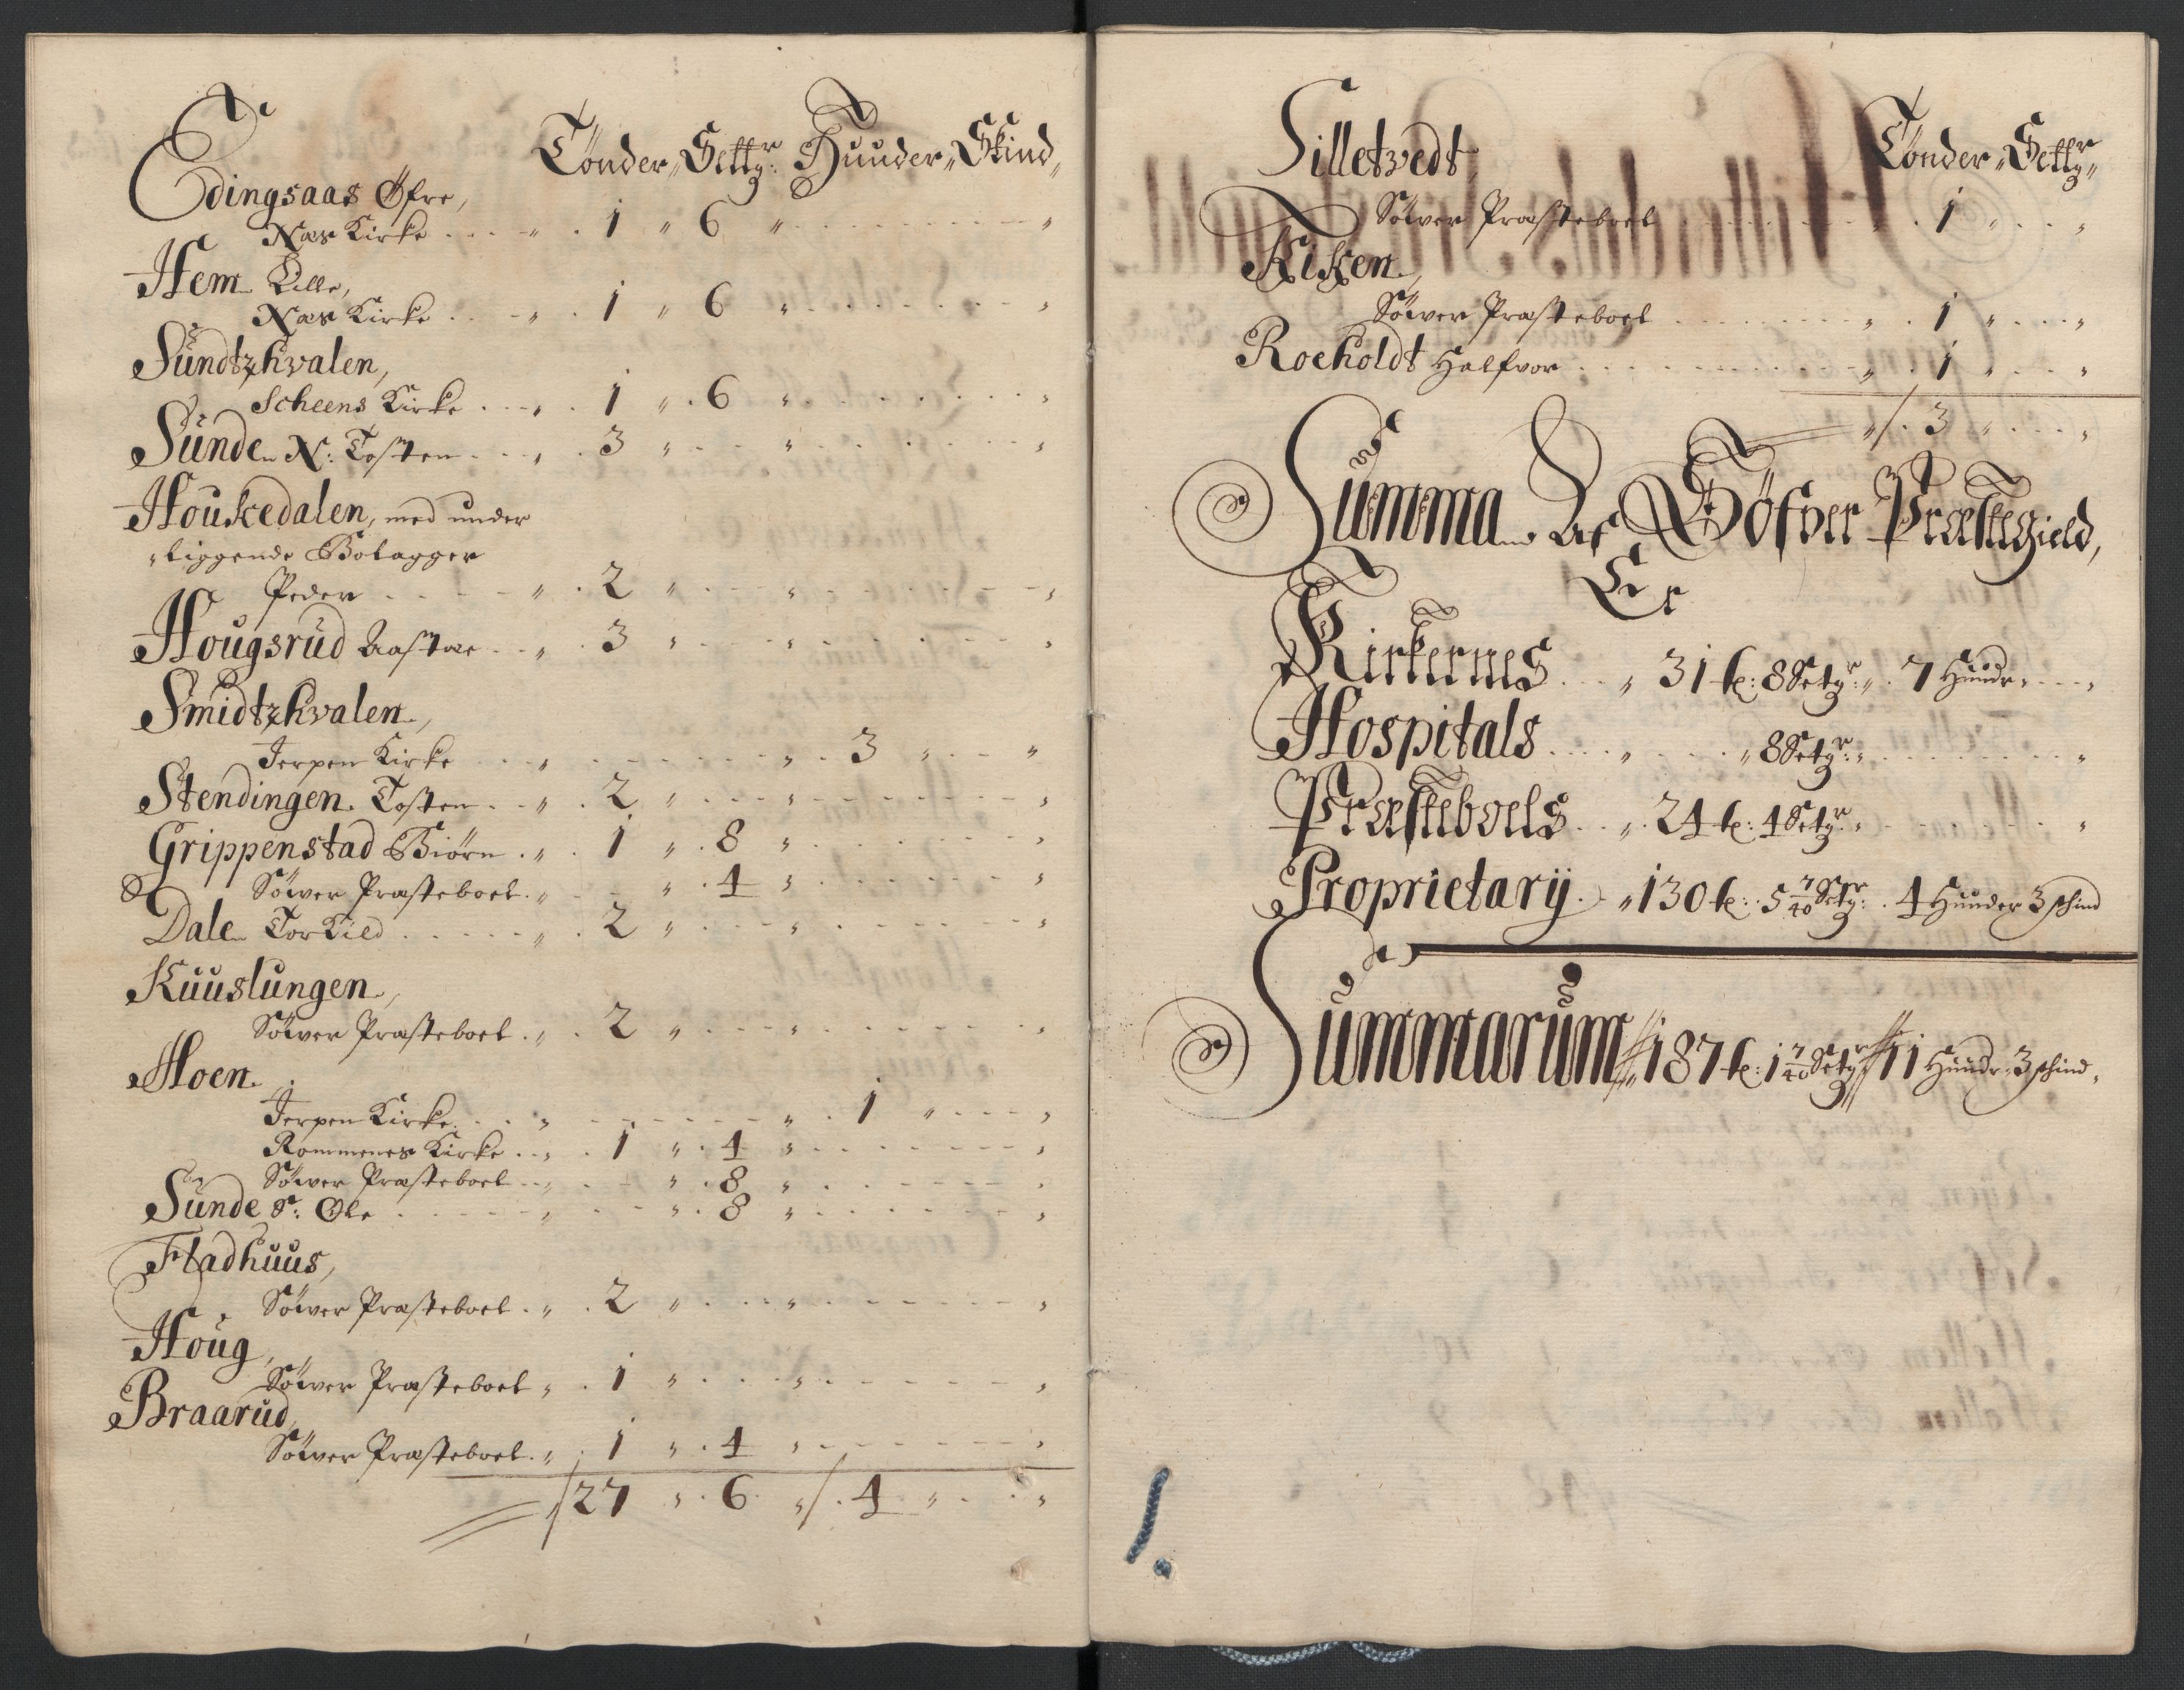 Tönder, Settgr: Huuder, Skind,
Edingsaas Øfre,
Næs Kirke . . . „ . 1 „ 6 „ . . . . „
Hem Lille,
Næs Kirke . . . „ . 1 „ 6 „ . . . . „
Sündtzhvalen,
Scheens Kirke . . . „ . 1 „ . 6 „ . . . . „
Sünde N: Tosten . . . „ . 3 „ . . „ . . . . „
Houskedalen, med under
„liggende Bolagger
Peder . . . . „ . 2 „ . . „ . . . . „
Hougsrud Aastæ . . „ . 3 „ . . „ . . . . „
Smidtzhvalen,
Jerpen Kirke . . „ . . . . „ . 3 „ . . „
Stendingen Tosten . . „ . 2 „ . . „ . . . . „
Grippenstad Biörn . „ . 1 „ . 8 „ . . . . „
Söwer Præsteboel . „ . . „ . 4 „ . . . . „
Dale Torkild . . . . „ . 2 „ . . „ . . . . „
Kuuslungen,
Söwer Præsteboel . „ . 2 „ . . „ . . . . „
Hoen
Jerpen Kirke . . „ . . . . „ . 1 „ . . „
Rommenes Kirke . . „ . 1 „ . 4 „ . . . . „
Söwer Præsteboel . . „ . . „ . 8 „ . . . . „
Sünde S: Ole . . . . „ . . „ . 8 „ . . . . „
Fladhuus,
Söwer Præsteboel . „ . 2 „ . . „ . . . . „
Houg,
Söwer Præsteboel „ . 1 „ . . „ . . . . „
Braarud,
Söwer Præsteboel . „ . 1 „ . 4 „ . . . . „
27 „ . 6 „ . 4 „ . . „
Tönder, Settgr„
Silletvedt,
Söwer Præsteboel . . . . 1 „ . . „
Kisken,
Söwer Præsteboel . . . . „ . 1 „ . . „
Roeholdt Halfvor . . . . „ . 1 „ . . „
„ . 3 „ . . „
Summa Af Söfver Præstegield,
Er
Kirkernes . . „ 31 t: 8 Setgr: „ . 7 Hundr, . . „
Hospitals . . . „ . . „ 8 Setgr: „ . . . . „
Præsteboels . . „ . 24 t: 4 Setgr: „ . . . . „
Proprietarÿ . „ 130 t: . 5 7/40 Setgr: . 4 Huuder 3 schind
Summarum „ 187 t: 1 7/40 Setgr 11 Hundr: 3 schind,